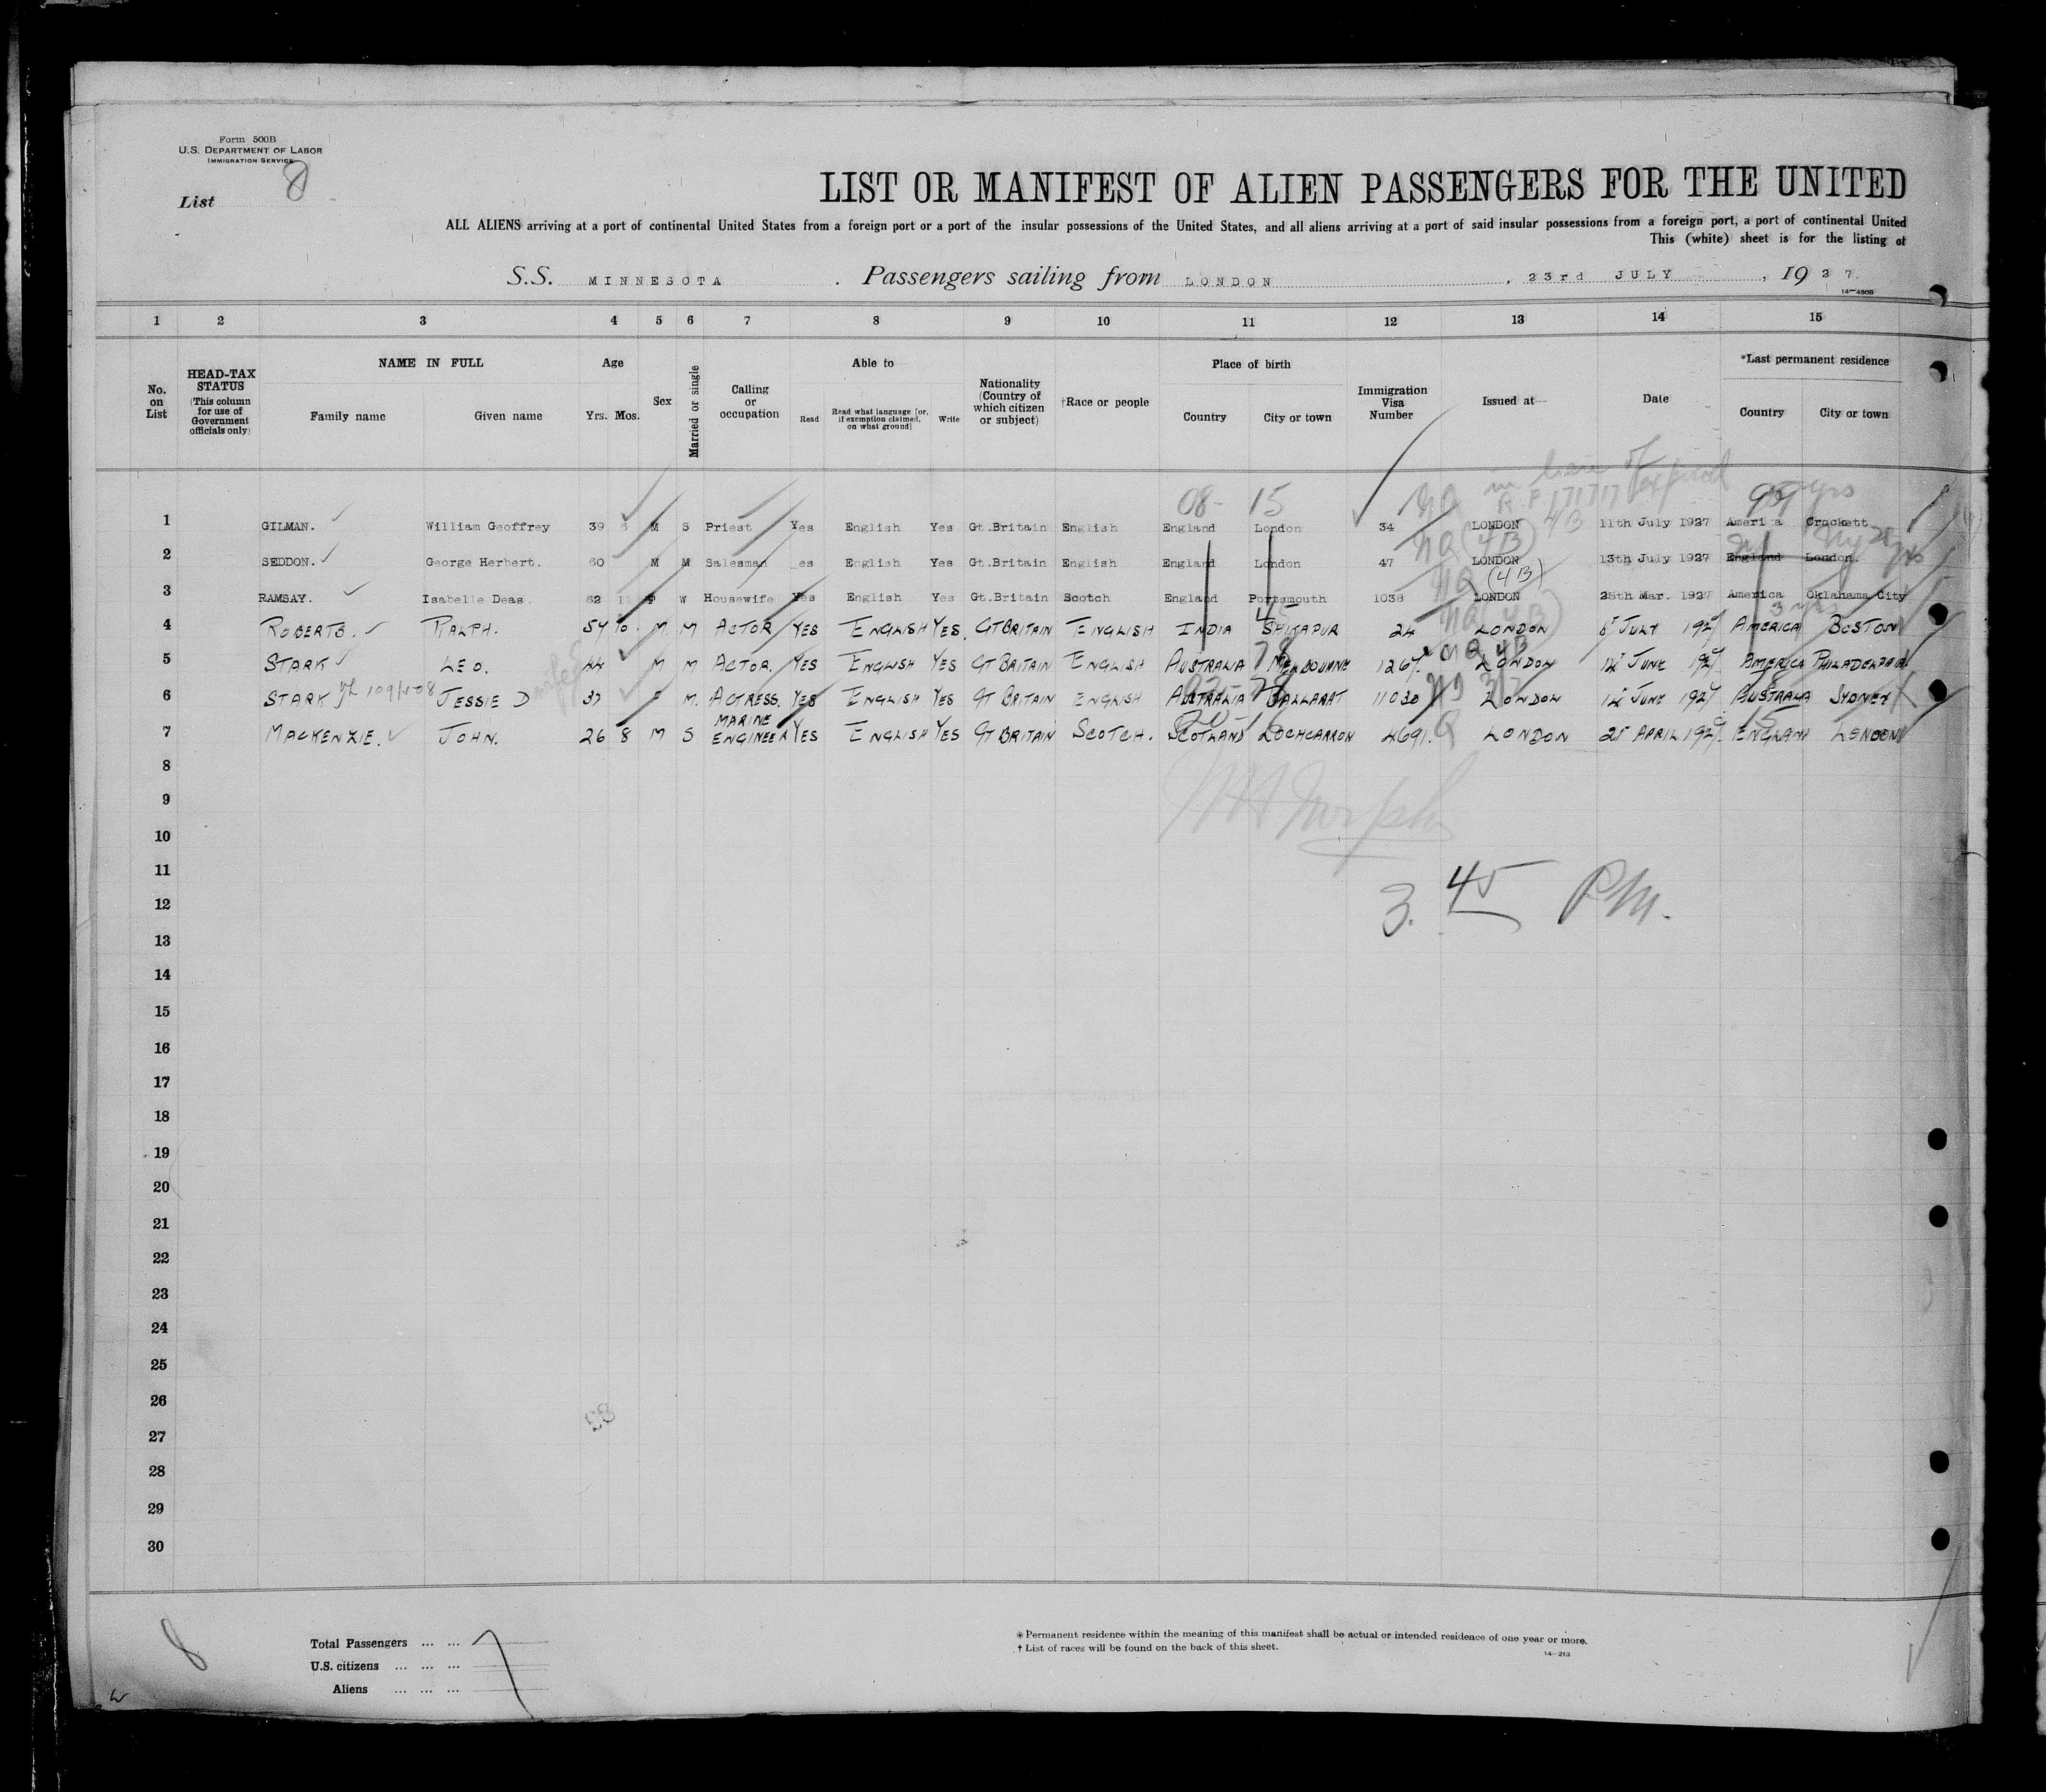 Form 500B
U.S. DEPARTMENT OF LABOR
IMMIGRATION SERVICE
List 8
LIST OR MANIFEST OF ALIEN PASSENGERS FOR THE UNITED
ALL ALIENS arriving at a port of continental United States from a foreign port or a port of the insular possessions of the United States, and all aliens arriving at a port of said insular possessions from a foreign port, a port of continental United
This (white) sheet is for the listing of
S.S. MINNESOTA . Passengers sailing from LONDON , 23rd JULY , 1927.
14—486B
1 2 3 4 5 6 7 8 9 10 11 12 13 14 15
No. on List
HEAD-TAX STATUS (This column for use of Government officials only)
NAME IN FULL
Family name Given name
Age
Yrs. Mos.
Sex
Married or single
Calling or occupation
Able to
Read Read what language [or, if exemption claimed, on what ground] Write
Nationality (Country of which citizen or subject)
†Race or people
Place of birth
Country City or town
Immigration Visa Number
Issued at—
Date
*Last permanent residence
Country City or town
08- 15
R P 171717 expired
1 GILMAN. William Geoffrey 39 6 M S Priest Yes English Yes Gt.Britain English England London 34 LONDON 11th July 1927 America Crockett
NQ (4B)
2 SEDDON. George Herbert. 60 M M Salesman es English Yes Gt.Britain English England London 47 LONDON 13th July 1927 England London.
NQ (4B)
3 RAMSAY. Isabelle Deas. 62 11 F W Housewife Yes English Yes Gt.Britain Scotch England Portsmouth 1038 LONDON 25th Mar. 1927 America Oklahama City
45 NQ (4B) 3 yrs
4 ROBERTS. RALPH. 54 10. M. M ACTOR YES ENGLISH YES. GT BRITAIN ENGLISH INDIA SHIKAPUR 24 LONDON 8" JULY 1927 AMERICA BOSTON
78 NQ 4B
5 STARK LEO. 44 M M ACTOR. YES ENGLISH YES GT BRITAIN ENGLISH AUSTRALIA MELBOURNE 1267. LONDON 14" JUNE 1927. AMERICA PHILADELPHIA
wife 5
6 STARK JESSIE D 37 F M. ACTRESS. YES ENGLISH YES GT BRITAIN ENGLISH AUSTRALIA BALLARAT 11030 LONDON 14" JUNE 1927 AUSTRALIA SYDNEY
7 MACKENZIE. JOHN. 26 8 M S MARINE ENGINEER YES ENGLISH YES GT BRITAIN SCOTCH. SCOTLAND LOCHCARRON 4691. Q LONDON 21" APRIL 1927. ENGLAND LONDON
8
9
10
11
3.45 PM.
12
13
14
15
16
17
18
19
20
21
22
23
24
25
26
27
28
29
30
8
Total Passengers ... ... 7
U.S. citizens ... ... ...
Aliens ... ... ...
* Permanent residence within the meaning of this manifest shall be actual or intended residence of one year or more.
† List of races will be found on the back of this sheet.
14—213